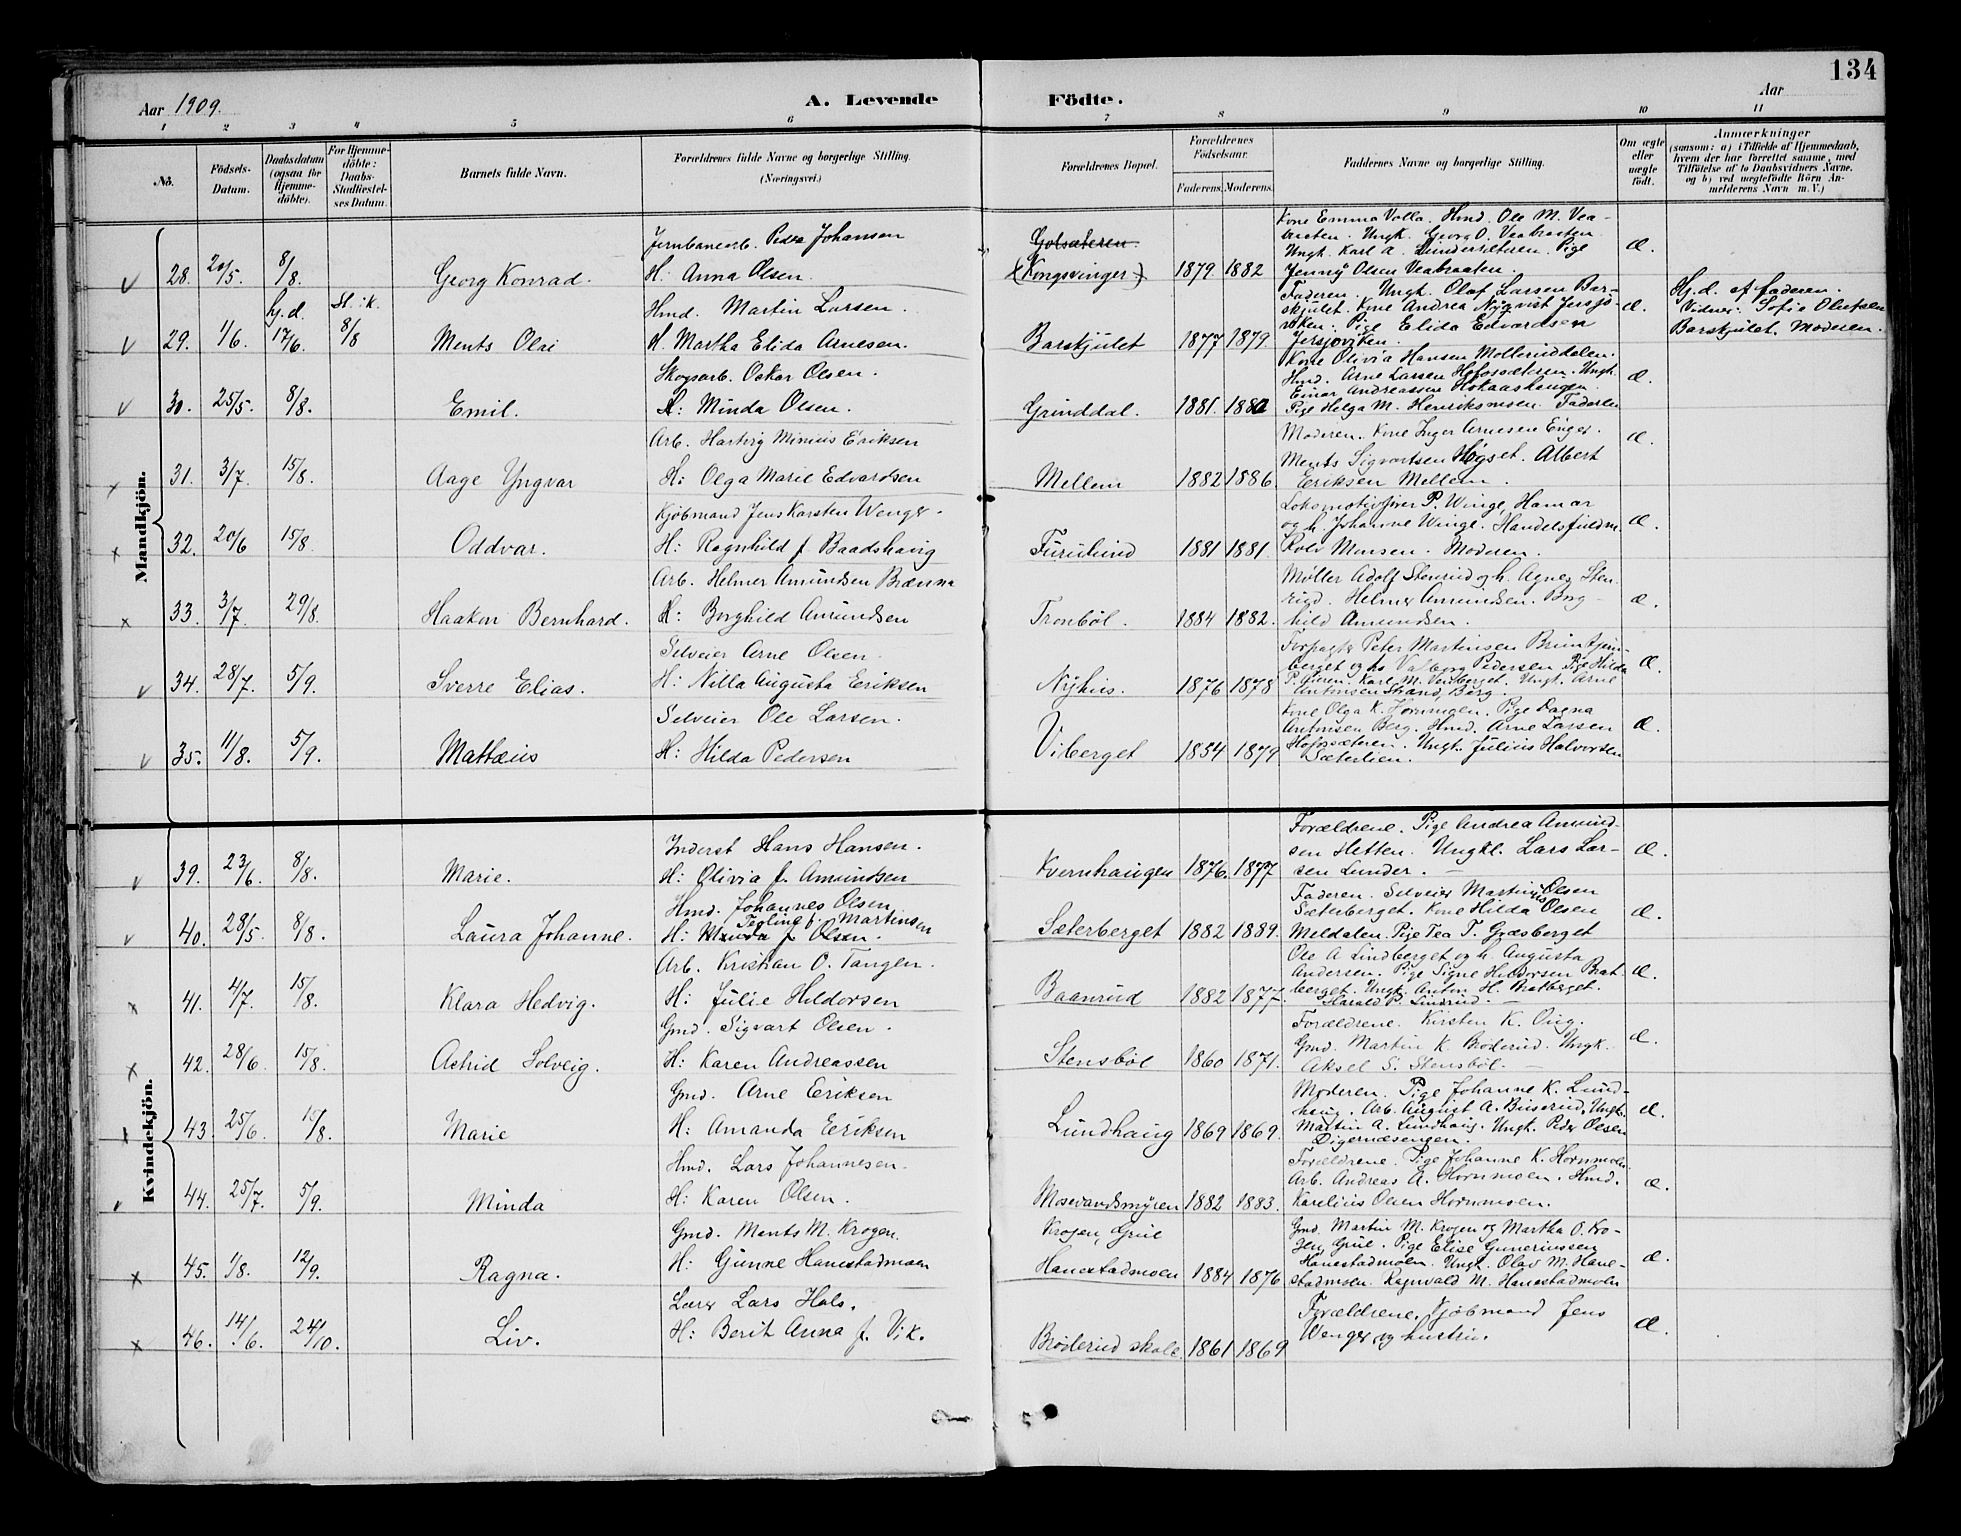 134
Aar 1909.
A. Levende Födte.
Aar
1 2 3 4 5 6 7 8 9 10 11
No.
Födsels-Datum.
Daabsdatum (ogsaa for Hjemme-döbte).
For Hjemme-döbte: Daabs-Stadfæstel-ses Datum.
Barnets fulde Navn.
Forældrenes fulde Navne og borgerlige Stilling. (Næringsvei.)
Forældrenes Bopæl.
Forældrenes Födselsaar.
Faderens. Moderens.
Faddernes Navne og borgerlige Stilling.
Om ægte eller uægte födt.
Anmærkninger
(saasom: a) i Tilfælde af Hjemmedaab, hvem der har forrettet samme, med Tilföielse af to Daabsvidners Navne, og b) ved uægtefödte Börn Anmelderens Navn m. V.)
Mandkjön.
28. 20/5 8/8. Georg Konrad.
Jernbanearb. Peder Johansen
H: Anna Olsen.
Golsæteren.
(Kongsvinger) 1879 1882
Kone Emma Valla. Hmd. Ole M. Vea-
braaten. Ungk. Georg O. Veabraaten
Ungk. Karl A. Lindersæteren. Pige
Jenny Olsen Veabraaten.
Æ.
29. 1/6. hj.d. 17/6. St.:k. 8/8 Ments Olai
Hmd. Martin Larsen.
H. Martha Elida Arnesen.
Barskjulet 1877 1879
Faderen. Ungk. Olaf Larsen Bar-
skjulet. Kone Andrea Nyqvist Jersjö-
viken. Pige Elida Edvardsen
Jersjoviken.
Æ.
Hj.d. af faderen.
Vidner: Sofie Olufsen
Barskjulet, Moderen.
30. 25/5. 8/8. Emil.
Skogsarb. Oskar Olsen.
H: Minda Olsen.
Grinddal. 1881. 1882
Kone Olivia Hansen Mølleruddalen.
Hmd. Arne Larsen Hofossæteren. Ungk.
Einar Andreassen Hokaashaugen.
Pige Helga M. Henriksmoen. Faderen
Æ.
31. 3/7. 15/8. Aage Yngvar
Arb. Hartvig Minius Eriksen
H: Olga Marie Edvardsen
Mellem 1882 1886.
Moderen. Kone Inger Arnesen Enger.
Ments Sigvartsen Høgset. Albert
Eriksen Mellem.
Æ.
32. 20/6 15/8. Oddvar.
Kjøbmand Jens Karsten Wenger.
H: Ragnhild f. Baadshaug
Furulund 1881 1881
Lokomotivfører P. Winge, Hamar
og h. Johanne Winge. Handelsfuldm.
Rolv Monsen. Moderen.
Æ.
33. 3/7. 29/8. Haakon Bernhard.
Arb. Helmer Amundsen Brænna
H: Borghild Amundsen
Tronbøl. 1884 1882.
Møller Adolf Stenrud og h. Agnes Sten-
rud. Helmer Amundsen. Borg-
hild Amundsen.
Æ.
34. 28/7. 5/9. Sverre Elias.
Selveier Arne Olsen.
H: Nilla Augusta Eriksen
Nyhus. 1876 1878
Forpagter Peter Martinsen Bruntjern-
berget og hs Valborg Pedersen Pige Hilda
Karl M. Venberget. Ungk. Arne
Antonsen Strand, Berg.
Æ.
35. 11/8. 5/9. Mattæus
Selveier Ole Larsen.
H: Hilda Pedersen
Viberget 1854 1879
Kone Olga K. Hornmoen. Pige Dagna
Antonsen Berg. Hmd. Arne Larsen
Hofossæteren. Ungk. Julius Halvorsen
Sæterlien.
Æ.
Kvindekjön.
39. 23/6. 8/8. Marie.
Inderst Hans Hansen.
H: Olivia f. Amundsen
Kvernhaugen 1876. 1877
Forældrene. Pige Andrea Amund-
sen Hetten. Ungkl. Lars Lar-
sen Lunder.
Æ.
40. 28/5. 8/8. Laura Johanne.
Hmd. Johannes Olsen
Teoline f. Martinsen
H: Minda f. Olsen.
Sæterberget 1882 1889.
Faderen. Selveier Martinius Olsen
Sæterberget. Kone Hilda Olsen
Meldalen. Pige Tea T. Græsberget
Æ.
41. 4/7. 15/8. Klara Hedvig.
Arb. Kristian O. Tangen.
H: Julie Hildorsen
Baanrud 1882 1877.
Ole A Lindberget og h. Augusta
Andersen. Pige Signe Hildorsen Brat-
berget. Ungk. Anton H. Bratberget.
Harald P. Lindrud.
Æ.
42. 28/6. 15/8. Astrid Solveig.
Gmd. Sigvart Olsen.
H: Karen Andreassen
Stensbøl 1860 1871.
Forældrene. Kirsten K. Oug.
Gmd. Martin K. Brøderud. Ungk.
Aksel S. Stensbøl.
Æ.
43. 25/6. 15/8. Marie
Gmd. Arne Eriksen
H: Amanda Eriksen
Lundhaug 1869 1869.
Moderen. Pige Johanne K. Lund-
haug. Arb. August A. Buserud, Ungk.
Martin A. Lundhaug. Ungk. Peder Olsen
Digernæsengen.
Æ.
44. 25/7. 5/9. Minda
Hmd. Lars Johannesen.
H: Karen Olsen.
Mosevandsmyren 1882 1883.
Forældrene. Pige Johanne K. Hornmoen.
Arb. Andreas A. Hornmoen. Hmd.
Karelius Olsen Hornmoen.
Æ.
45. 1/8. 12/9. Ragna.
Gmd. Ments M. Krogen.
H: Gunne Hanestadmoen
Krogen, Grue
Hanestadmoen 1884 1876
Gmd. Martin M. Krogen og Martha O. Kro-
gen, Grue. Pige Elise Gunerinssen
Hanestadmoen. Ungk. Olav M. Hane-
stadmoen. Ragnvald M. Hanestadmoen
Æ.
46. 14/6. 24/10. Liv.
Lærer Lars Hals.
H: Berit Anna f. Vik.
Brøderud skole. 1861 1869
Forældrene. Kjøbmand Jens
Wenger og hustru.
Æ.